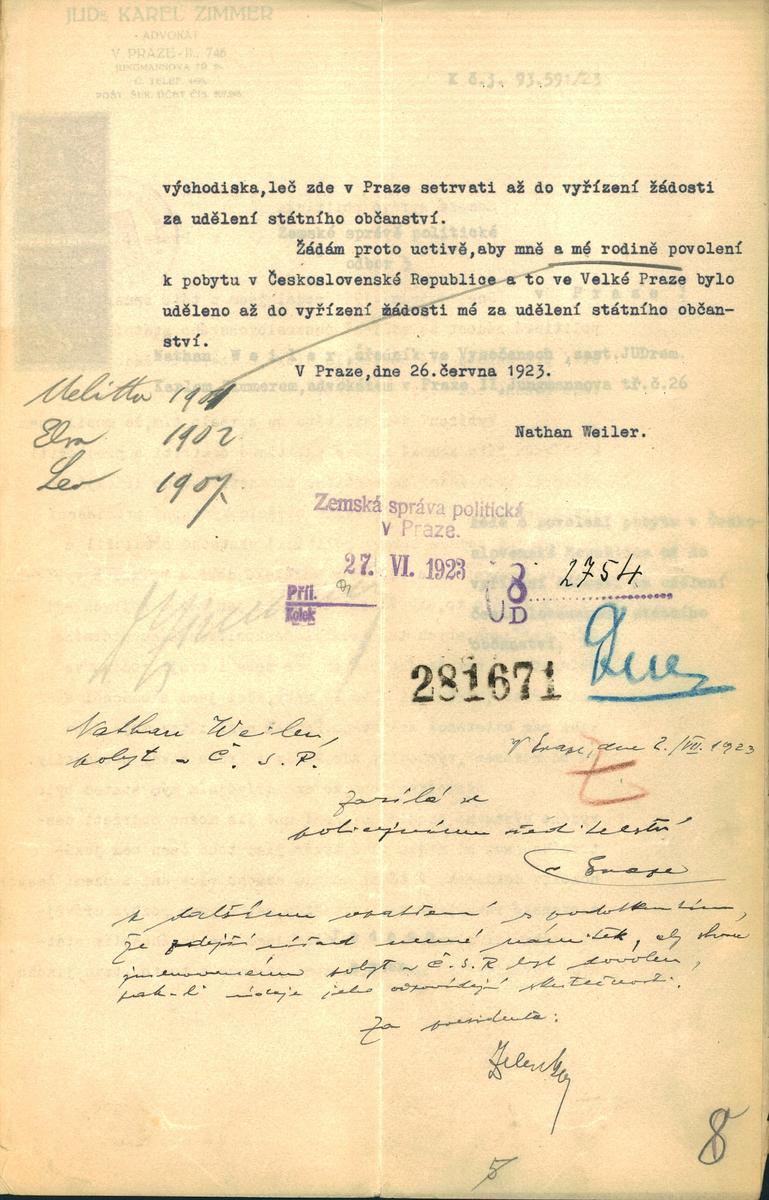 JUDr KAREL ZIMMER
ADVOKÁT
V PRAZE-II., 746
K č.j. 93.591/23
východiska,leč zde v Praze setrvati až do vyřízení žádosti
za udělení státního občanství.
Žádám proto uctivě,aby mně a mé rodině povolení
k pobytu v Československé Republice a to ve Velké Praze bylo
uděleno až do vyřízení žádosti mé za udělení státního občan-
ství.
V Praze,dne 26.června 1923.
Nathan Weiler.
Melitta 1901
Elsa 1902
Leo 1907.
Zemská správa politická
v Praze.
27. VI. 1923
8 2754
D
Příl.
Kolek
281671
Nathan Weiler,
pobyt v Č. S. R.
V Praze, dne 2./VII. 1923
Zasílá se
policejnímu ředitelství
v Praze
k dalšímu opatření s podotknutím,
že zdejší úřad nemá námitek, aby shora
jmenovanému pobyt v Č.S.R. byl povolen,
pak-li údaje jeho odpovídají skutečnosti.
Za presidenta:
8
5